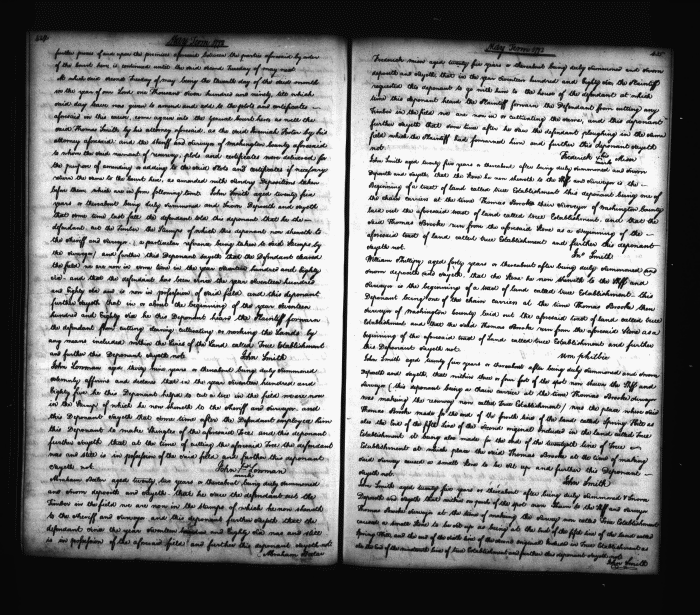 424
May Term 1792
further proces of and upon the premises aforesaid between the parties aforesaid by order
of the Court here is continued until the said second Tuesday of may next
At which said second Tuesday of may being the eleventh day of the said month
in the year of our Lord one Thousand seven hundred and ninety two till which
said day leave was given to amend and add to the plots and certificates
aforesaid in this cause, come again into the general Court here as well the
said Thomas Smith by his attorney aforesaid as the said by his
attorney aforesaid and the Sheriff and surveyor of Washington County aforesaid
to whom the said warrant of resurvey, plots and certificates were delivered for
the purpose of amending and adding to the said plots and certificates if necessary
return the same to the Court here, as amended with sundry Depositions taken
before them which are in form following towit. John Smith aged twenty five
years or thereabout being duly summoned and sworn deposeth and sayeth
that some time last fall the defendant told this deponant that he the
defendant cut the Timber the stumps of which this deponant now sheweth to
the Sheriff and surveyor, (a particular reference being taken to such stumps by
the surveyor) and further this Deponant sayeth that the Defendant cleared
the field we are now in some time in the year seventeen hundred and Eighty
six and that the defendant has been since the year seventeen hundred
and Eighty six and is now in possession of said field and this deponant
further sayeth that in or about the beginning of the year seventeen
hundred and Eighty six he this Deponant heard the Plaintiff forwarn
the defendant from cutting clearing cultivating or working the Lands by
any means included within the lines of the Land called True Establishment
and further this Deponant sayeth not John Smith
John Lowman aged thirty nine years or thereabout being duly summoned
solemnly affirms and declares that in the year seventeen hundred and
Eighty five he this Deponant helped to cut a tree in the field we are now
in the stump of which he now sheweth to the sheriff and surveyor and
this Deponant sayeth that some time after the Defendant employed him
this Deponant to make of the aforesaid Tree and this deponant
further sayeth that at the time of cutting the aforesaid Tree the defendant
was and still is in possession of the said field and further this deponant
sayeth not John Lowman
Abraham aged twenty six years or thereabout being duly summoned
and sworn deposeth and sayeth that he saw the defendant cut the
Timber in the field we are now in the stumps of which he now sheweth
to the sheriff and surveyor and this deponant further sayeth that the
defendant since the year seventeen hundred and Eighty six was and still
is in possession of the aforesaid field and further this deponant sayeth not
Abraham
May Term 1792
425
Frederick aged twenty five years or thereabout being duly summoned and sworn
deposeth and sayeth that in the year seventeen hundred and Eighty six the Plaintiff
requested this deponant to go with him to the house of the defendant at which
time this deponant heard the Plaintiff forwarn the Defendant from cutting any
Timber in the field we are now in or cultivating the same, and this deponant
further sayeth that some time after he saw the defendant ploughing in the same
field which the Plaintiff had forwarned him and further this deponant sayeth
not. Frederick
John Smith aged twenty five years or thereabout after being duly summoned and sworn
Deposeth and sayeth, that the stone he now sheweth to the Sheriff and surveyor is the
Beginning of a tract of land called True Establishment this deponant being one of
the chain carriers at the time Thomas Brooke then surveyor of Washington County
laid out the aforesaid tract of land called True Establishment, and that the
said Thomas Brooke run from the aforesaid stone as a beginning of the
aforesaid tract of land called True Establishment and further this deponant
sayeth not. Jno Smith
William Phillips aged forty years or thereabout after being duly summoned and
sworn deposeth and sayeth, that the stone he now sheweth to the Sheriff and
surveyor is the beginning of a tract of Land called True Establishment this
Deponant being one of the chain carriers at the time Thomas Brooke then
surveyor of Washington County laid out the aforesaid tract of land called True
Establishment and that the said Thomas Brooke run from the aforesaid stone as a
beginning of the aforesaid tract of land called True Establishment and further
this Deponant sayeth not. Wm
John Smith aged twenty five years or thereabout after being duly summoned and sworn
Deposeth and sayeth, that within three or four feet of the spot now shewn the Sheriff and
surveyor (this deponant being a chain carrier at the time Thomas Brooke surveyor
was making the resurvey now called True Establishment) was the place where said
Thomas Brooke made for the end of the fourth line of the land called Spring and
also the End of the fifth line of the second original included in the land called True
Establishment it being also made for the end of the line of True
Establishment at which place the said Thomas Brooke at the time of making
said survey caused a small stone to be set up and further this Deponant
sayeth not. John Smith
John Smith aged twenty five years or thereabout after being duly summoned & sworn
Deposeth and sayeth that within of the spot now shewn to the Sheriff and surveyor
Thomas Brooke surveyor at the time of making the survey now called True Establishment
caused a small stone to be set up as being at the End of the fifth line of the land called
Spring and the end of the sixth line of the second original included in True Establishment as
also the End of the line of True Establishment and further this deponant sayeth not.
John Smith